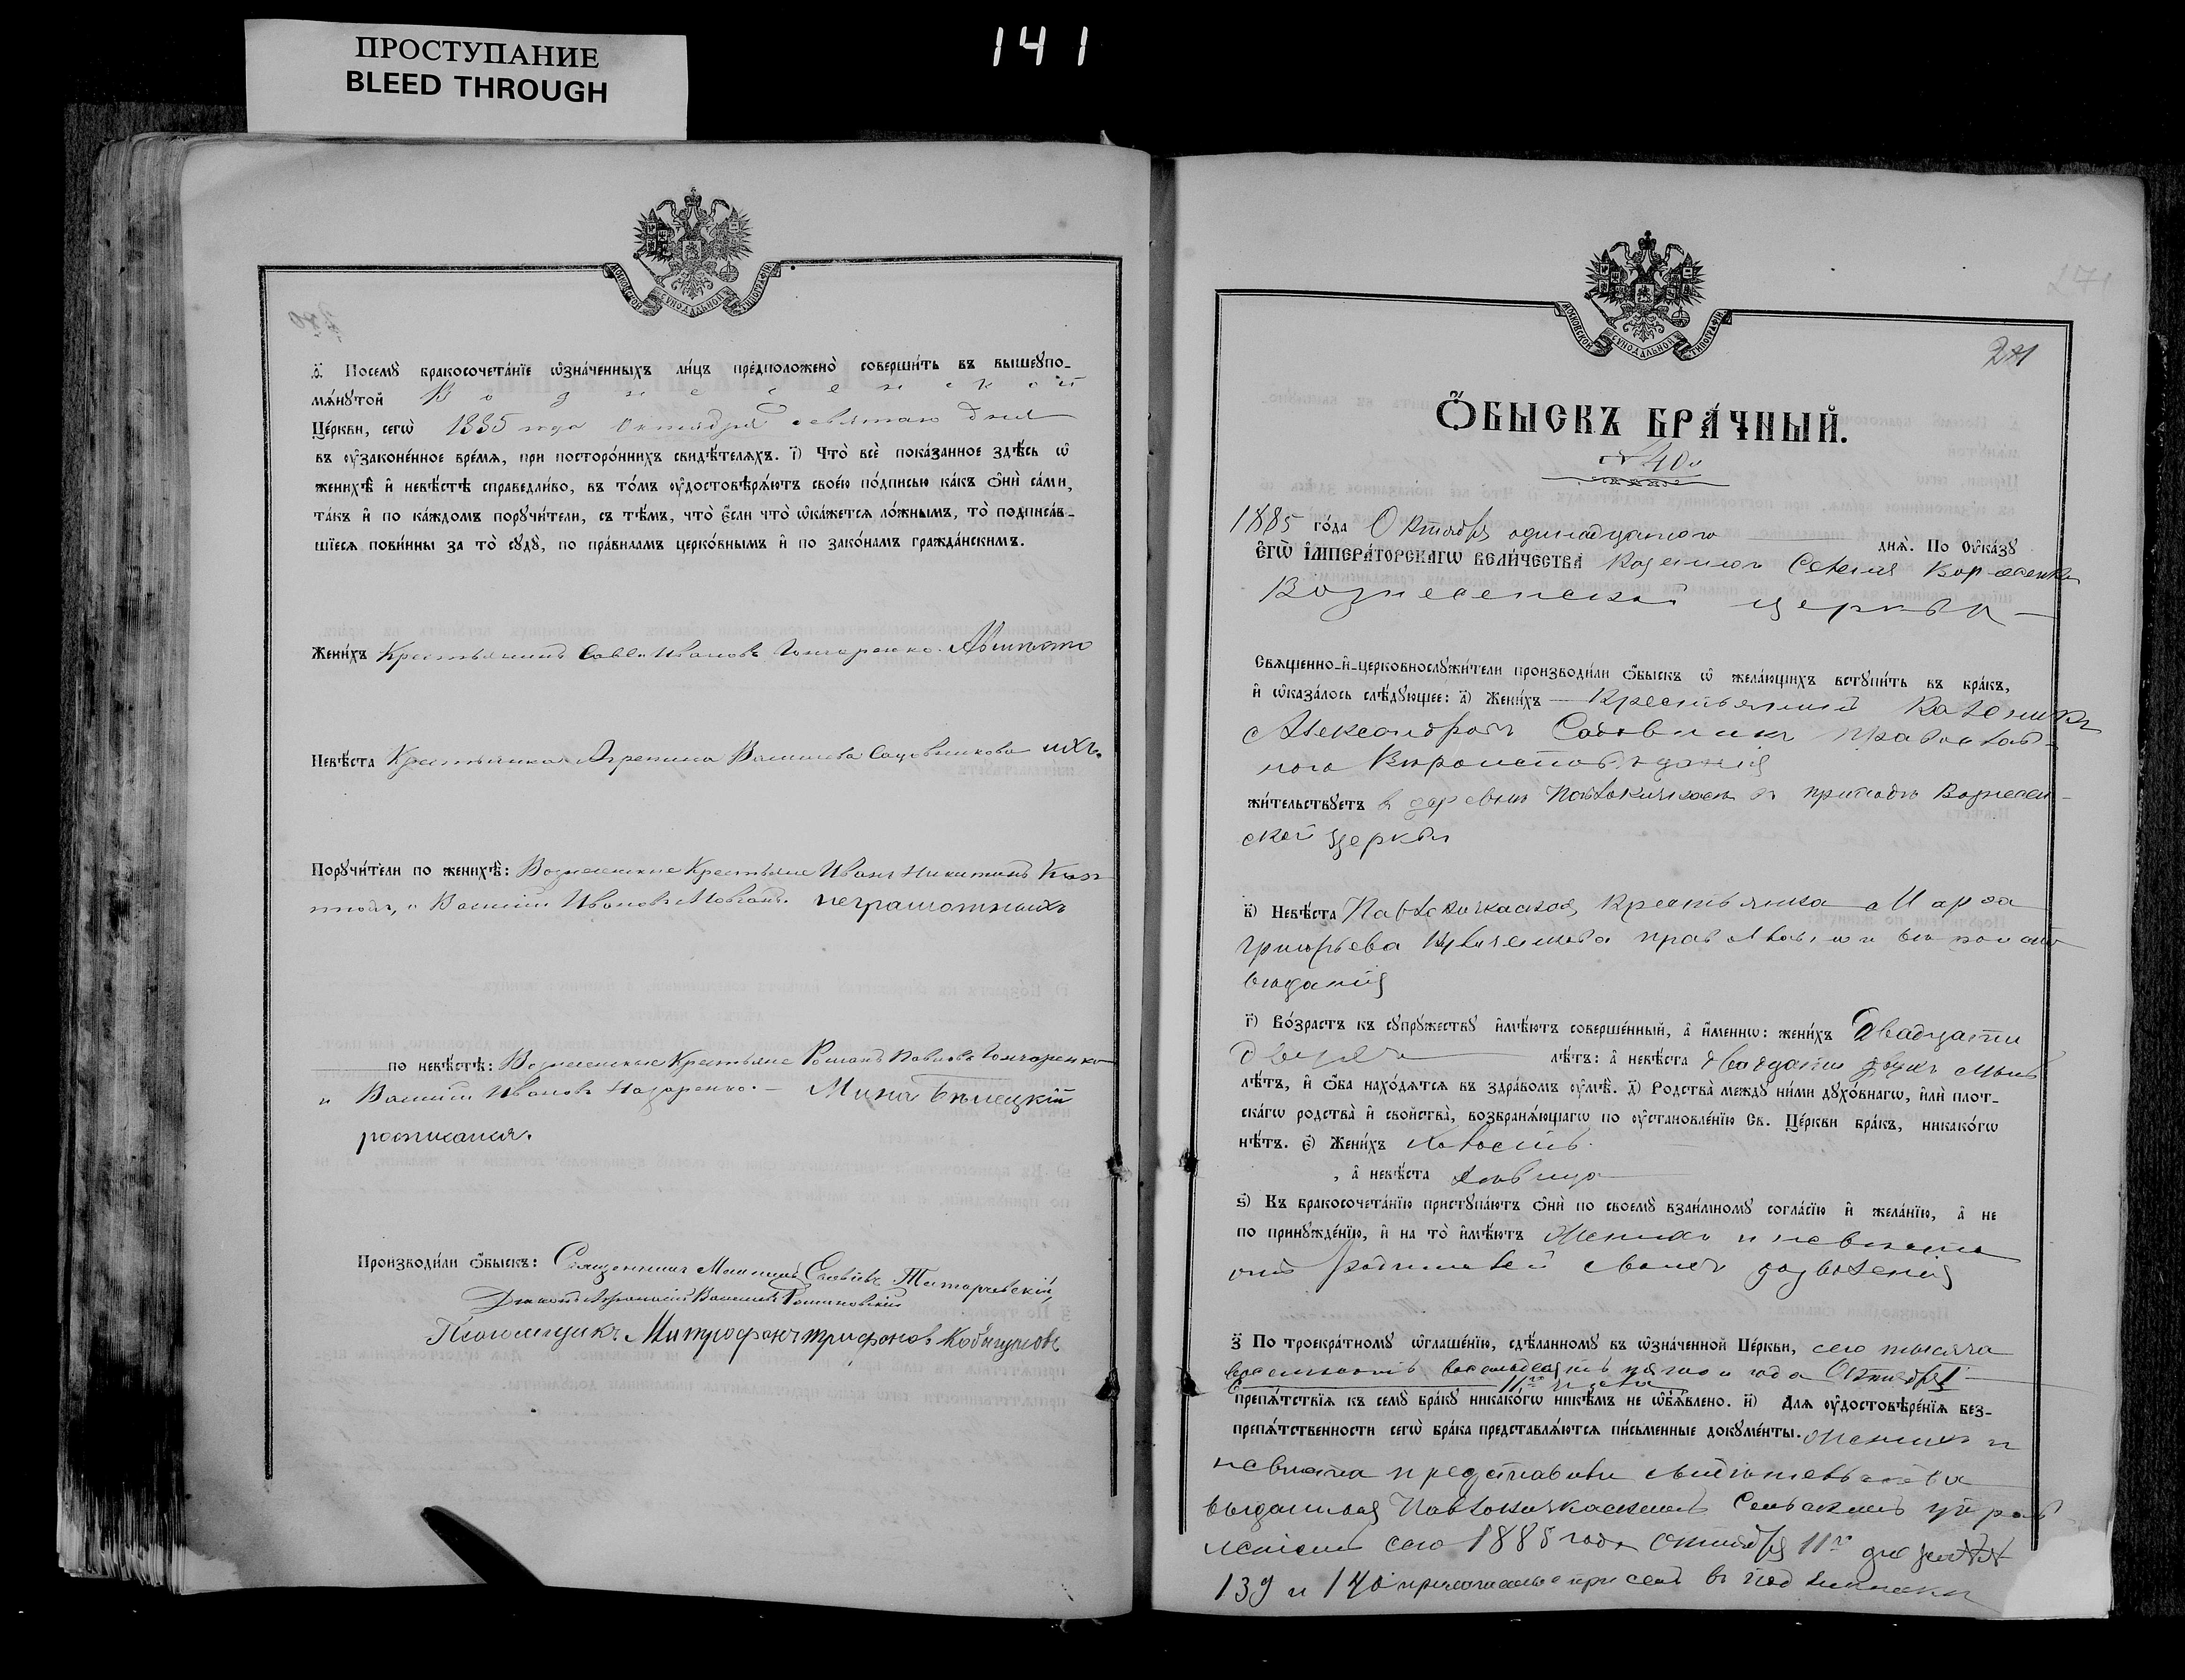 ПРОСТУПАНИЕ
BLEED THROUGH
141
МОСКОВСКОЙ СѴНОДАЛЬНОЙ ТИПОГРАФІИ
ѳ҃. Посемꙋ̀ бракосочета́нїе ѡ҆зна́ченныхъ ли́цъ предположено̀ соверши́ть въ вышеꙋпо-
мѧ́нꙋтой Вознесенской
Це́ркви, сегѡ̀ 1885 года Октября девятаго дня
въ ᲂу҆зако́ненное вре́мѧ, при посторо́ннихъ свидѣ́телѧхъ. і҃) Что̀ всѐ пока́занное здѣ́сь ѡ҆
женихѣ̀ и҆ невѣ́стѣ справедли́во, въ то́мъ ᲂу҆достовѣрѧ́ютъ свое́ю по́дписью ка́къ ѻ҆нѝ са́ми,
та́къ и҆ по ка́ждомъ порꙋчи́тели, съ тѣ́мъ, что̀ є҆́сли что̀ ѡ҆ка́жетсѧ ло́жнымъ, то̀ подписа́в-
шїесѧ пови́нны за то̀ сꙋдꙋ̀, по пра́виламъ церко́внымъ и҆ по зако́намъ гражда́нскимъ.
Жени́хъ Крестьянинъ Савва Ивановъ Гончаренко.
Невѣ́ста Крестьянка Агрепина Васильева Садовникова ихъ.
Порꙋчи́тели по женихѣ̀: Вознесенские Крестьяне Иванъ Никитинъ
и Василий Ивановъ неграмотныхъ
по невѣ́стѣ: Вознесенские Крестьяне Романъ Павловъ Гончаренко
и Василий Ивановъ Назаренко. – Мина Бѣлецкій
росписался.
Производи́ли ѻ҆́быскъ: Священникъ
Діаконъ Василий
Псаломщикъ Митрофанъ Трифоновъ
МОСКОВСКОЙ СѴНОДАЛЬНОЙ ТИПОГРАФІИ
271
271
Ѻ҆́БЫСКЪ БРА́ЧНЫЙ.
№ 40й
1885 го́да Октября одинадцатого днѧ̀. По Оу҆ка́зꙋ
Є҆гѡ̀ И҆мпера́торскагѡ Вели́чества Селения
Вознесенской церкви
Свѧще́нно-и҆-церковнослꙋжи́тели производи́ли ѻ҆́быскъ ѡ҆ жела́ющихъ встꙋпи́ть въ бра́къ,
и҆ ѡ҆каза́лось слѣ́дꙋющее: а҃) Жени́хъ Крестьянинъ
Александровъ Садовникъ православ-
ного Вѣроисповѣдания
жи́тельствꙋетъ в деревни Павлокичкасъ в приходѣ Вознесен-
ской церкви
в҃) Невѣ́ста Павлокичкаская Крестьянка Марфа
Григорьева православного вѣроиспо
вѣдания
г҃) Во́зрастъ къ сꙋпрꙋ́жествꙋ и҆мѣ́ютъ соверше́нный, а҆ и҆́меннѡ: жени́хъ двадцати
двухъ лѣ́тъ: а҆ невѣ́ста двадцати двухъ
лѣ́тъ, и҆ ѻ҆́ба нахо́дѧтсѧ въ здра́вомъ ᲂу҆мѣ̀. д҃) Родства̀ междꙋ̀ ни́ми дꙋхо́внагѡ, и҆лѝ плот-
ска́гѡ родства̀ и҆ сво́йства, возбранѧ́ющагѡ по ᲂу҆становле́нїю Св. Це́ркви бра́къ, никако́гѡ
нѣ́тъ. є҃) Жени́хъ холостъ.
, а҆ невѣ́ста дѣвица
ѕ҃) Къ бракосочета́нїю пристꙋпа́ютъ ѻ҆нѝ по своемꙋ̀ взаи́мномꙋ согла́сїю и҆ жела́нїю, а҆ не
по принꙋжде́нїю, и҆ на то̀ и҆мѣ́ютъ Женихъ и невѣста
отъ родителей своихъ дозволения
з҃ По троекра́тномꙋ ѡ҆глаше́нїю, сдѣ́ланномꙋ въ ѡ҆зна́ченной Це́ркви, сего тысяча
восемьсотъ восемьдесятъ пятого года Октября
11го числа
препѧ́тствїѧ къ семꙋ̀ бра́кꙋ никако́гѡ никѣ́мъ не ѡ҆б̾ѧ́влено. и҃) Для ᲂу҆достовѣре́нїѧ без-
препѧ́тственности сегѡ̀ бра́ка представлѧ́ютсѧ пи́сьменные докꙋме́нты. Женихъ и
невѣста представили свидѣтельства
выданныя Павлокичкаскимъ Сельскимъ управ
лениемъ сего 1885 года октября 11го дня за №№
139 и 140 при семъ в подлинники